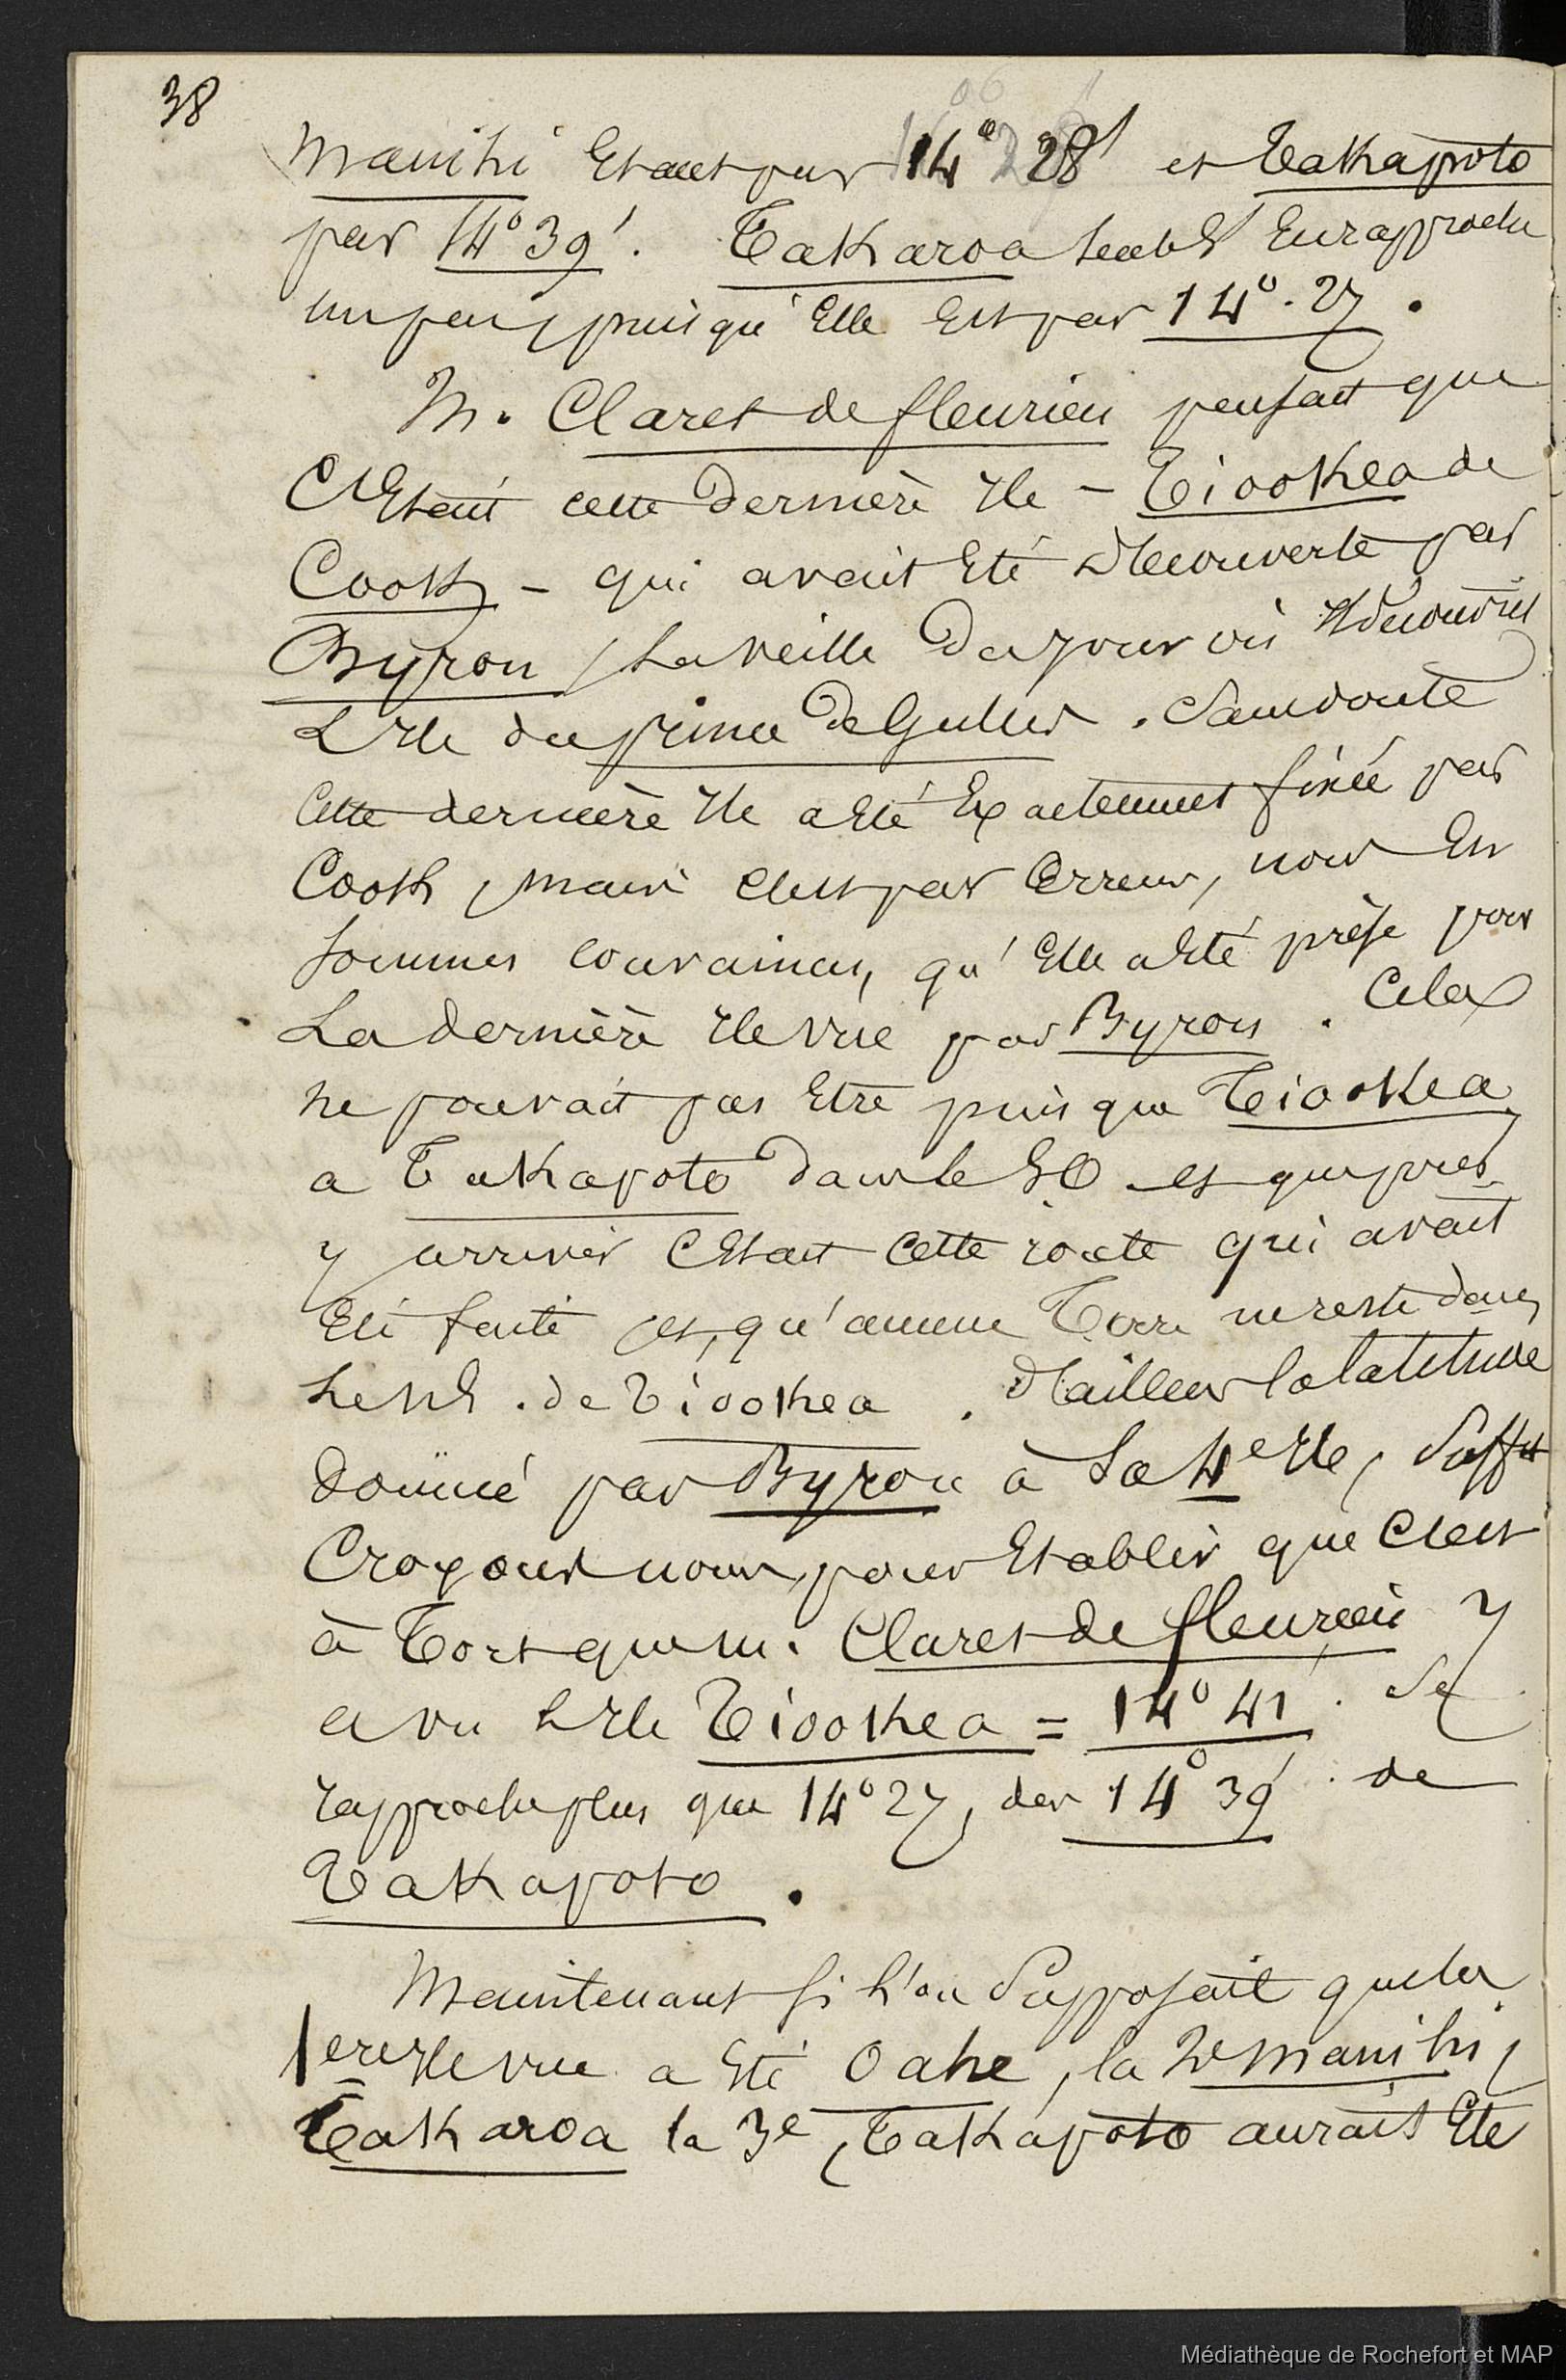 38
Manihi Etant par 14° 28' et Takapoto
par 14° 39'. Takaroa semble s'en rapprocher
un peu, puisqu'Elle Est par 14°. 27.
M. Claret de fleurieu pensait que
C'Etait cette Dernière Ile - Tiookea de
Cook, - qui avait Eté decouverte par
Byron, La veille Du jour où Il découvrit
L'Ile du prince de Galles. Sans doute
Cette dernière Ile a Eté Exactement fixée par
Cook, mais c'est par Erreur, nous En
sommes convaincu, qu'Elle a Eté prise pour
La dernière Ile vue par Byron. Cela
ne pouvait pas Etre puisque Tiookea
a Takapoto dans le SO et que pour
y arriver C'Etait cette route qui avait
Eté faite et, qu'aucune Terre ne reste dans
Le SE. de Tiookea. D'ailleurs la latitude
Donnée par Byron à La 4e Ile, Suffit
Croyons nous, pour Etablir que C'est
à Tort que M. Claret de fleurieu y
a vu L'Ile Tiookea = 14° 41'. Se
rapproche plus que 14° 27, des 14° 39'. de
Takapoto.
Maintenant si L'on Supposait que la
1ere Ile vue a Eté Oahe, la 2e Manihi,
Takaroa la 3e, Takapoto aurait Eté
Médiathèque de Rochefort et MAP